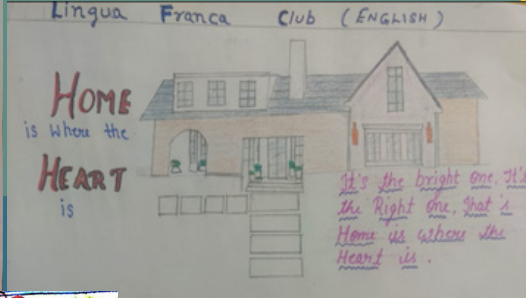 Lingua Franca Club (ENGLISH)
HOME
is where the
HEART
is
It's the bright one, It's
the Right one, That's
Home is where the
Heart is.